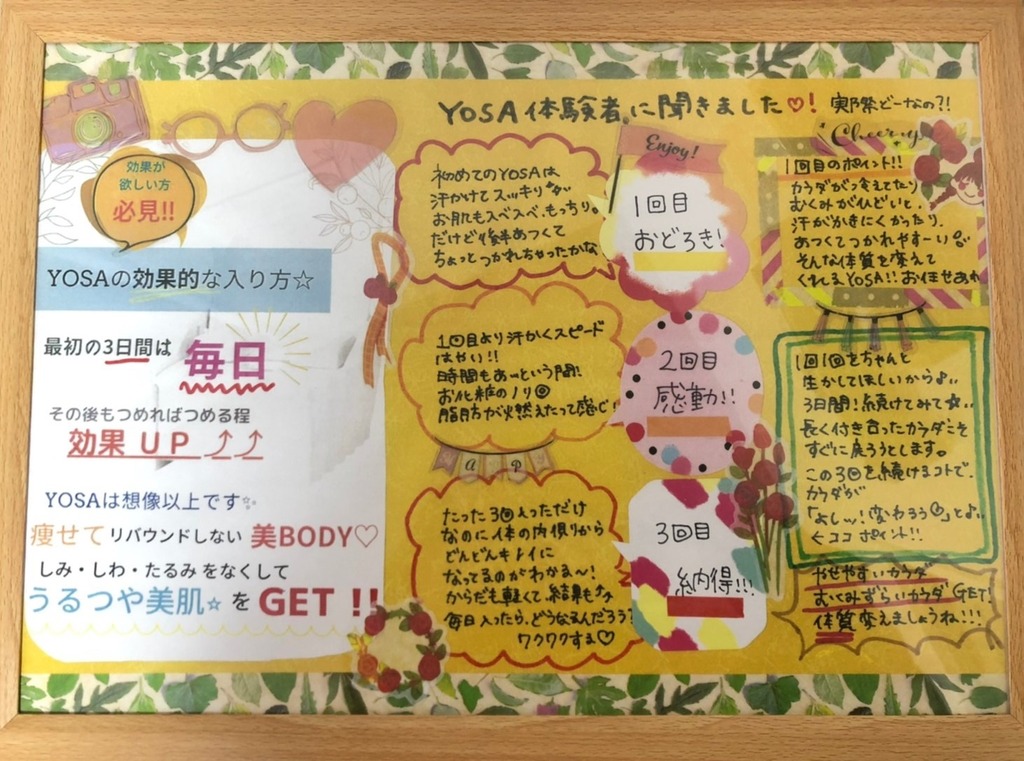 効果が
欲しい方
必見!!
YOSAの効果的な入り方☆
最初の3日間は 毎日
その後もつめればつめる程
効果 UP ⤴⤴
YOSAは想像以上です✨
痩せて リバウンドしない 美BODY♡
しみ・しわ・たるみ をなくして
うるつや美肌☆ を GET !!
YOSA体験者に聞きました♡! 実際どーなの?!
初めてのYOSAは
汗かけてスッキリ
お肌もスベスベ、もっちり。
だけど後半あつくて
ちょっとつかれちゃったかな
Enjoy!
1回目
おどろき!
Cheery!
1回目のポイント!!
カラダが冷えてたり
むくみがひどいと、
汗がかきにくかったり、
あつくてつかれやすーい
そんな体質を変えて
くれるYOSA!! お任せあれ
1回目より汗かくスピード
はやい!!
時間もあっという間!
お化粧のノリ◎
脂肪が燃えたって感じ!
2回目
感動!!
1回1回をちゃんと
生かしてほしいから♪
3日間!続けてみて☆
長く付き合ったカラダこそ
すぐに戻ろうとします。
この3回を続けるコトで、
カラダが
「よしッ!変わろう」と♪
←ココ ポイント!!
A P
たった3回入っただけ
なのに体の内側から
どんどんキレイに
なってるのがわかる〜!
からだも軽くて結果も
毎日入ったら、どうなるんだろう?
ワクワクする♡
3回目
納得!!!
やせやすいカラダ
むくみずらいカラダGET!
体質変えましょうね!!!